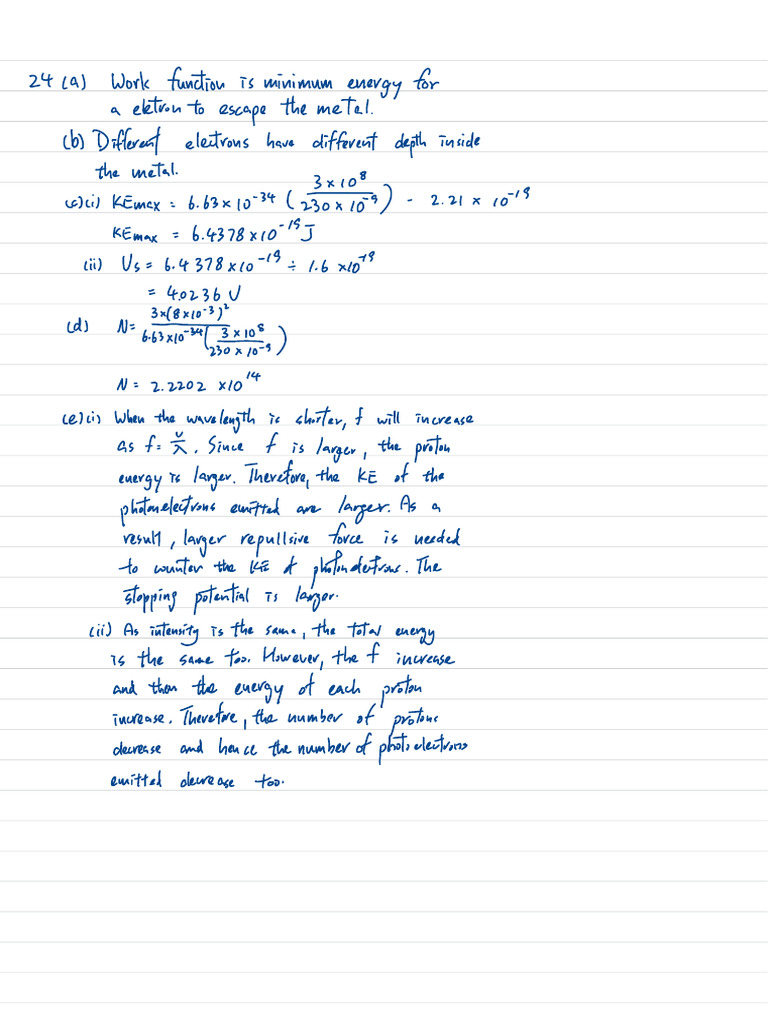 24 (a) Work function is minimum energy for
a eletron to escape the metal.
(b) Different electrons have different depth inside
the metal.
(c)(i) KEmax = 6.63 × 10^-34 ( 3 × 10^8 / 230 × 10^-9 ) - 2.21 × 10^-19
KEmax = 6.4378 × 10^-19 J
(ii) Us = 6.4378 × 10^-19 ÷ 1.6 × 10^-19
= 4.0236 V
(d) N = 3×(8×10^-3)^2 / 6.63×10^-34 ( 3 × 10^8 / 230 × 10^-9 )
N = 2.2202 × 10^14
(e)(i) When the wavelength is shorter, f will increase
as f = v/λ. Since f is larger, the proton
energy is larger. Therefore, the KE of the
photonelectrons emitted are larger. As a
result, larger repullsive force is needed
to counter the KE of photonelectrons. The
stopping potential is larger.
(ii) As intensity is the same, the total energy
is the same too. However, the f increase
and then the energy of each proton
increase. Therefore, the number of protons
decrease and hence the number of photoelectrons
emitted decrease too.